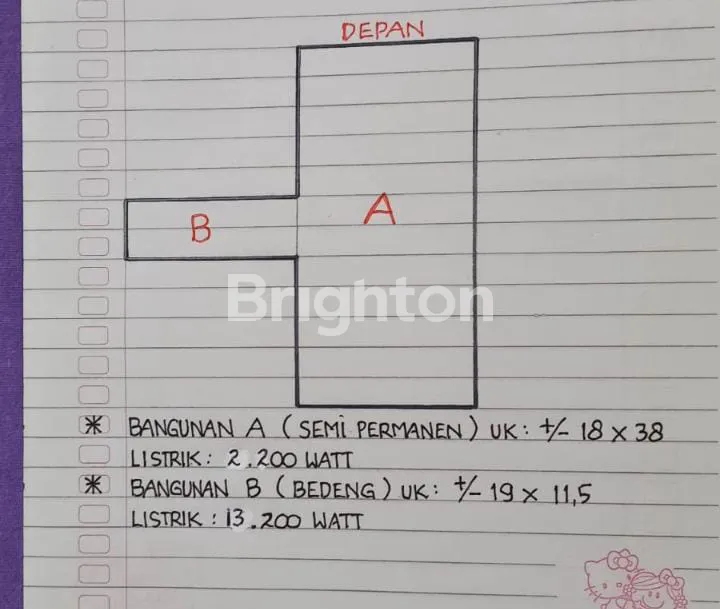 DEPAN
A
B
Brighton
* BANGUNAN A (SEMI PERMANEN) UK: +/- 18 x 38
LISTRIK: 2.200 WATT
* BANGUNAN B (BEDENG) UK: +/- 19 x 11,5
LISTRIK: 13.200 WATT